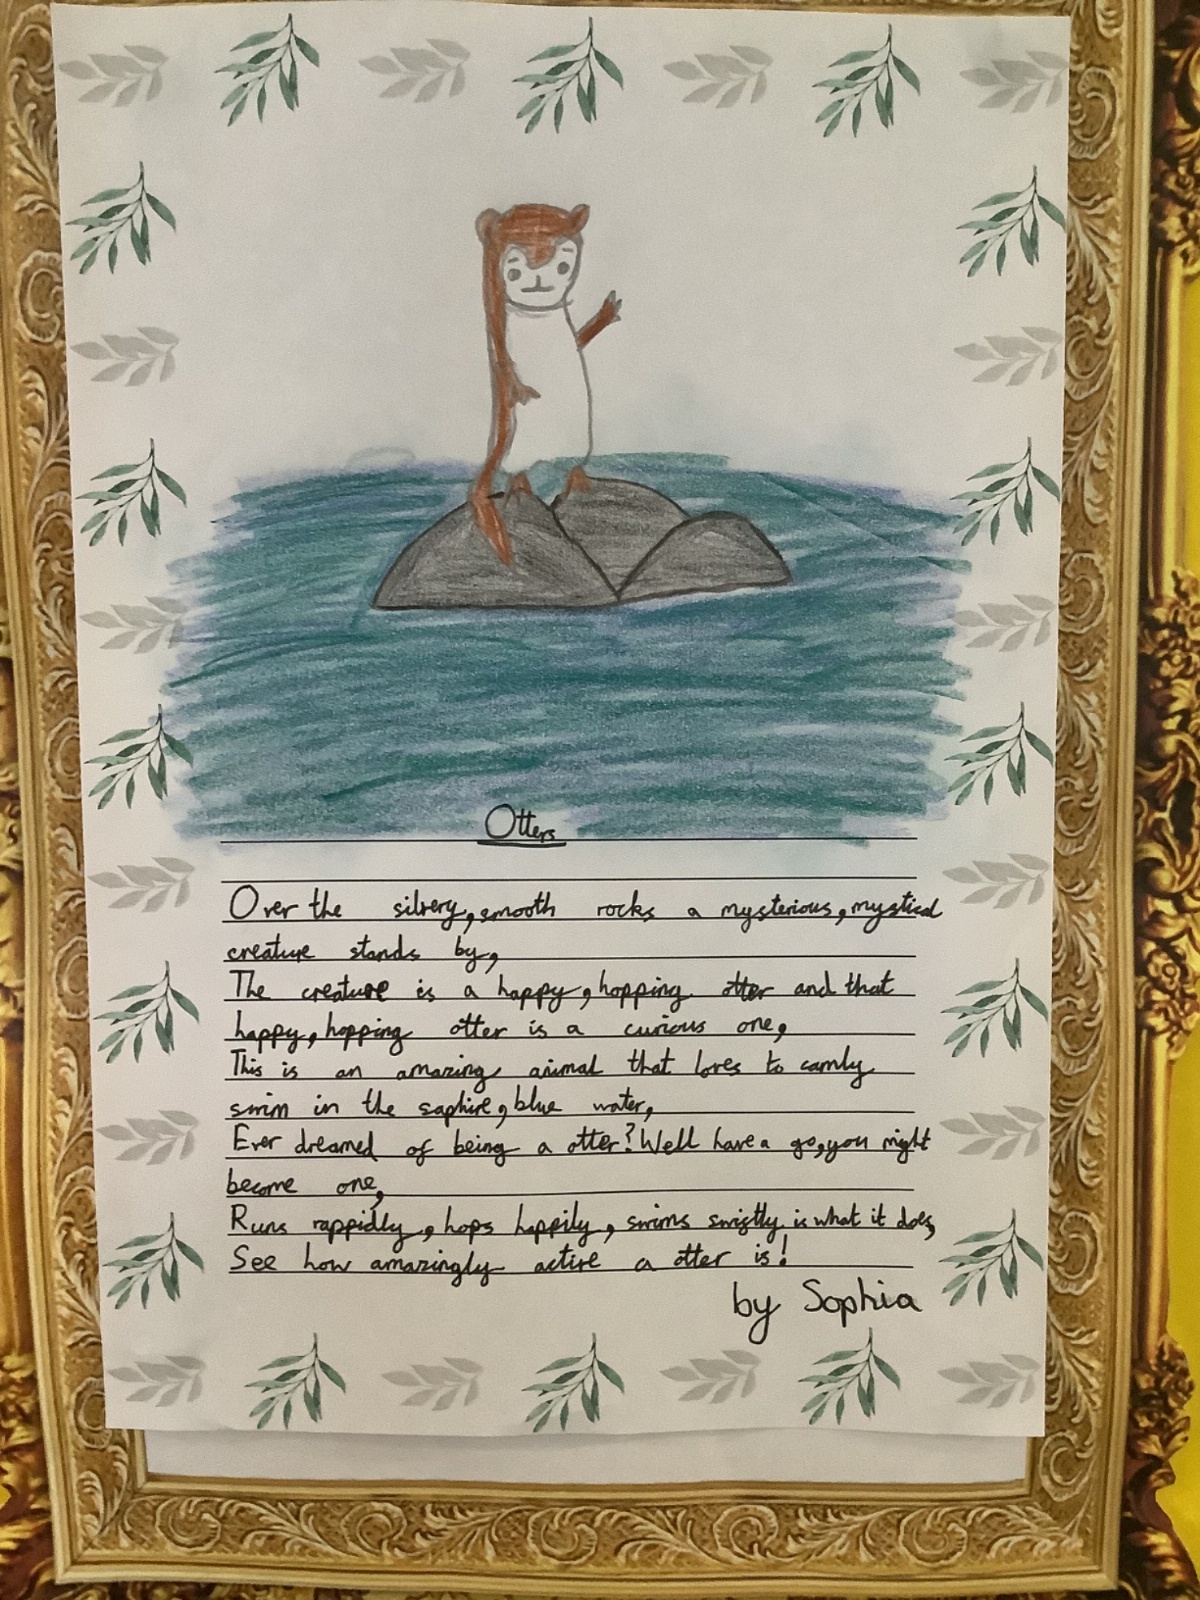 Otters
Over the silvery, smooth rocks a mysterious, mystical
creature stands by,
The creature is a happy, hopping otter and that
happy, hopping otter is a curious one,
This is an amazing animal that loves to camly
swim in the saphire, blue water,
Ever dreamed of being a otter? Well have a go, you might
become one,
Runs rappidly, hops happily, swims swistly is what it does,
See how amazingly active a otter is!
by Sophia